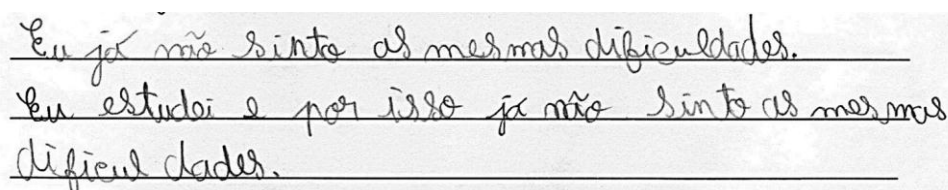 Eu já não sinto as mesmas dificuldades.
Eu estudei e por isso já não sinto as mesmas
dificuldades.